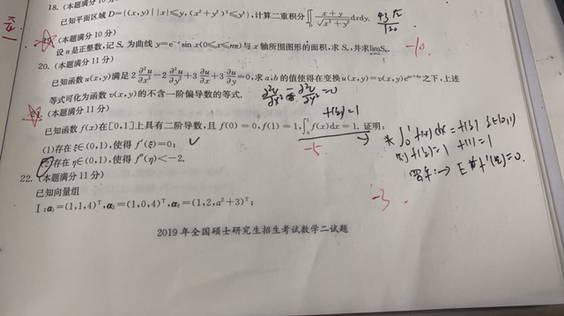 18. (本题满分10分)
已知平面区域D={(x,y)||x|≤y,(x²+y²)³≤y⁴},计算二重积分∬_D (x+y)/√(x²+y²) dxdy.
(本题满分10分)
设n是正整数,记Sₙ为曲线y=e⁻ˣsin x(0≤x≤nπ)与x轴所围图形的面积,求Sₙ,并求limSₙ.
-10
20. (本题满分11分)
已知函数u(x,y)满足2∂²u/∂x²-2∂²u/∂y²+3∂u/∂x+3∂u/∂y=0,求a,b的值使得在变换u(x,y)=v(x,y)e^(ax+by)之下,上述
等式可化为函数v(x,y)的不含一阶偏导数的等式.
∂²v/∂x² - ∂²v/∂y² = 0
(本题满分11分)
f(ξ)=1
已知函数f(x)在[0,1]上具有二阶导数,且f(0)=0,f(1)=1,∫₀¹f(x)dx=1.证明:
(1)存在ξ∈(0,1),使得f′(ξ)=0; ✓
-5
(2)存在η∈(0,1),使得f″(η)<-2.
22. (本题满分11分)
已知向量组
Ⅰ:α₁=(1,1,4)ᵀ,α₂=(1,0,4)ᵀ,α₃=(1,2,a²+3)ᵀ;
-3
2019年全国硕士研究生招生考试数学二试题